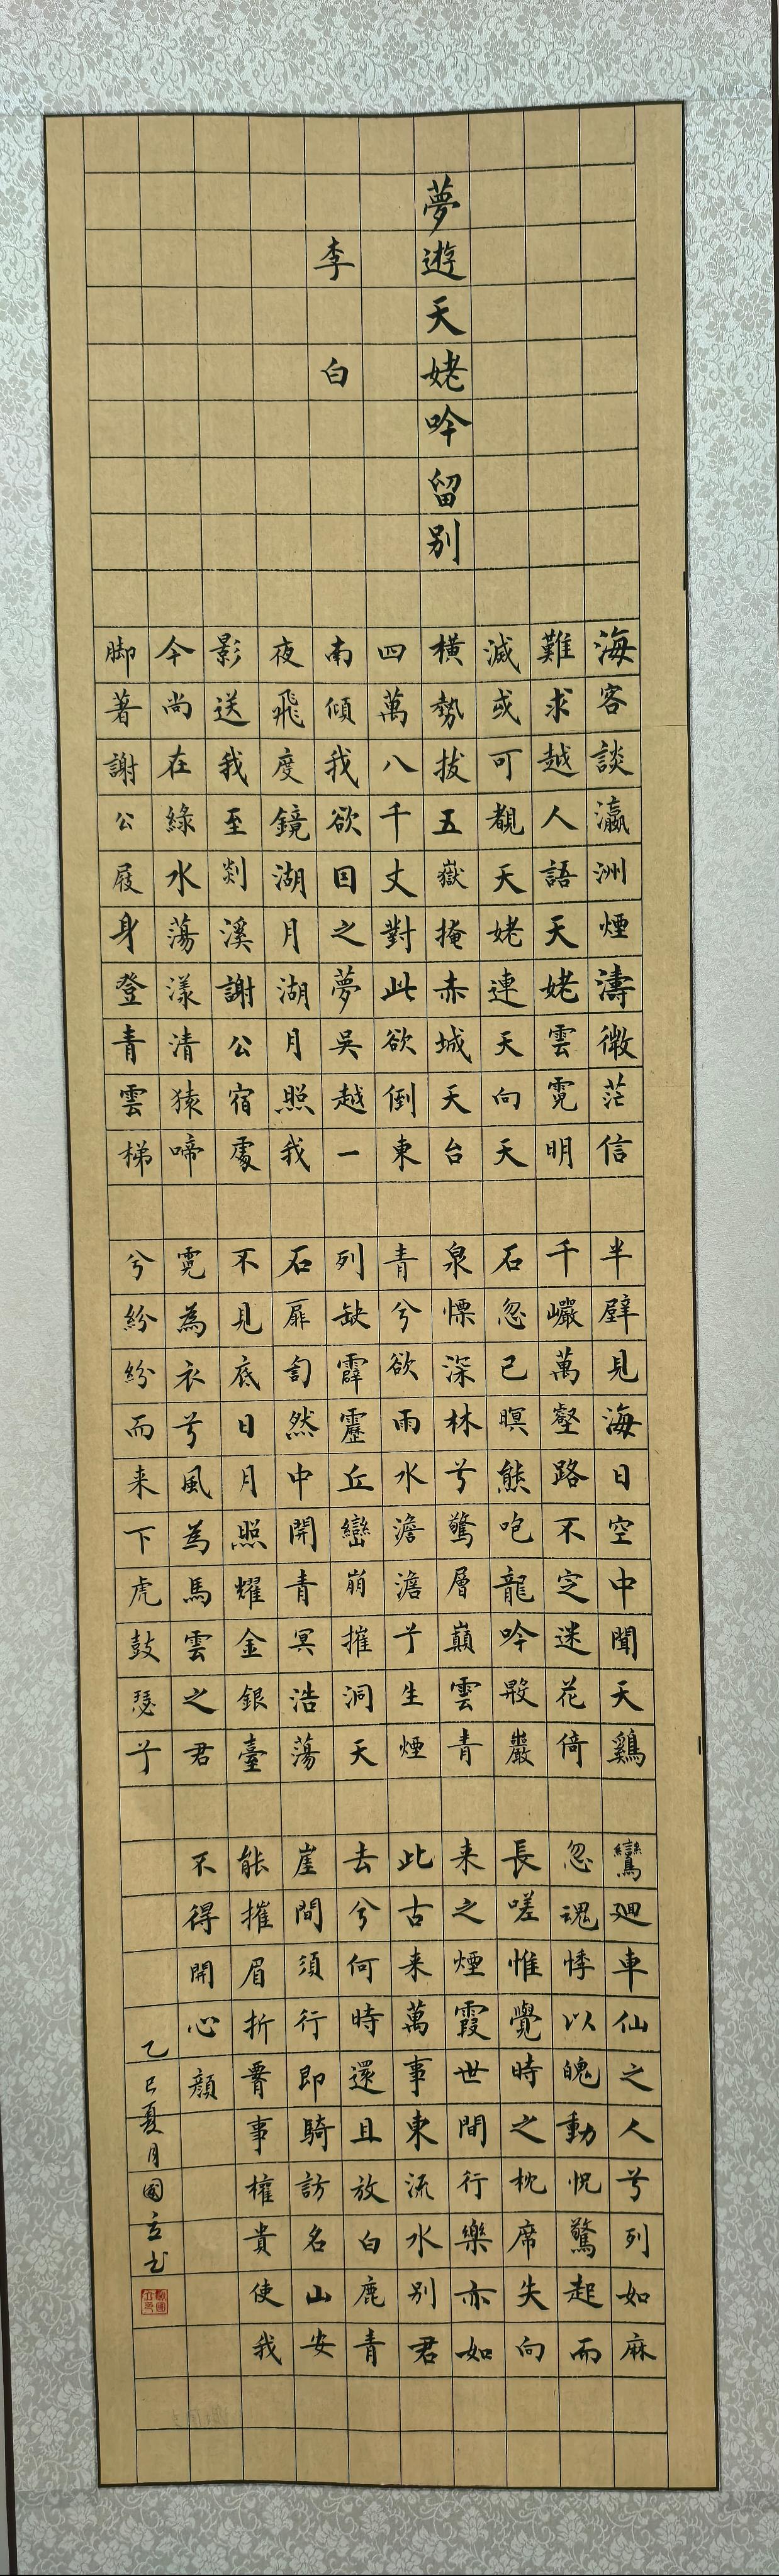 夢遊天姥吟留別
李白
海客談瀛洲煙濤微茫信
難求越人語天姥雲霓明
滅或可覩天姥連天向天
橫勢拔五嶽掩赤城天台
四萬八千丈對此欲倒東
南傾我欲因之夢吳越一
夜飛度鏡湖月湖月照我
影送我至剡溪謝公宿處
今尚在綠水蕩漾清猿啼
脚著謝公屐身登青雲梯
半壁見海日空中聞天鷄
千巖萬壑路不定迷花倚
石忽已暝熊咆龍吟殷巖
泉慄深林兮驚層巔雲青
青兮欲雨水澹澹兮生煙
列缺霹靂丘巒崩摧洞天
石扉訇然中開青冥浩蕩
不見底日月照耀金銀臺
霓為衣兮風為馬雲之君
兮紛紛而来下虎鼓瑟兮
鸞廻車仙之人兮列如麻
忽魂悸以魄動怳驚起而
長嗟惟覺時之枕席失向
来之煙霞世間行樂亦如
此古来萬事東流水別君
去兮何時還且放白鹿青
崖間須行即騎訪名山安
能摧眉折腰事權貴使我
不得開心顏
乙巳夏月國立书